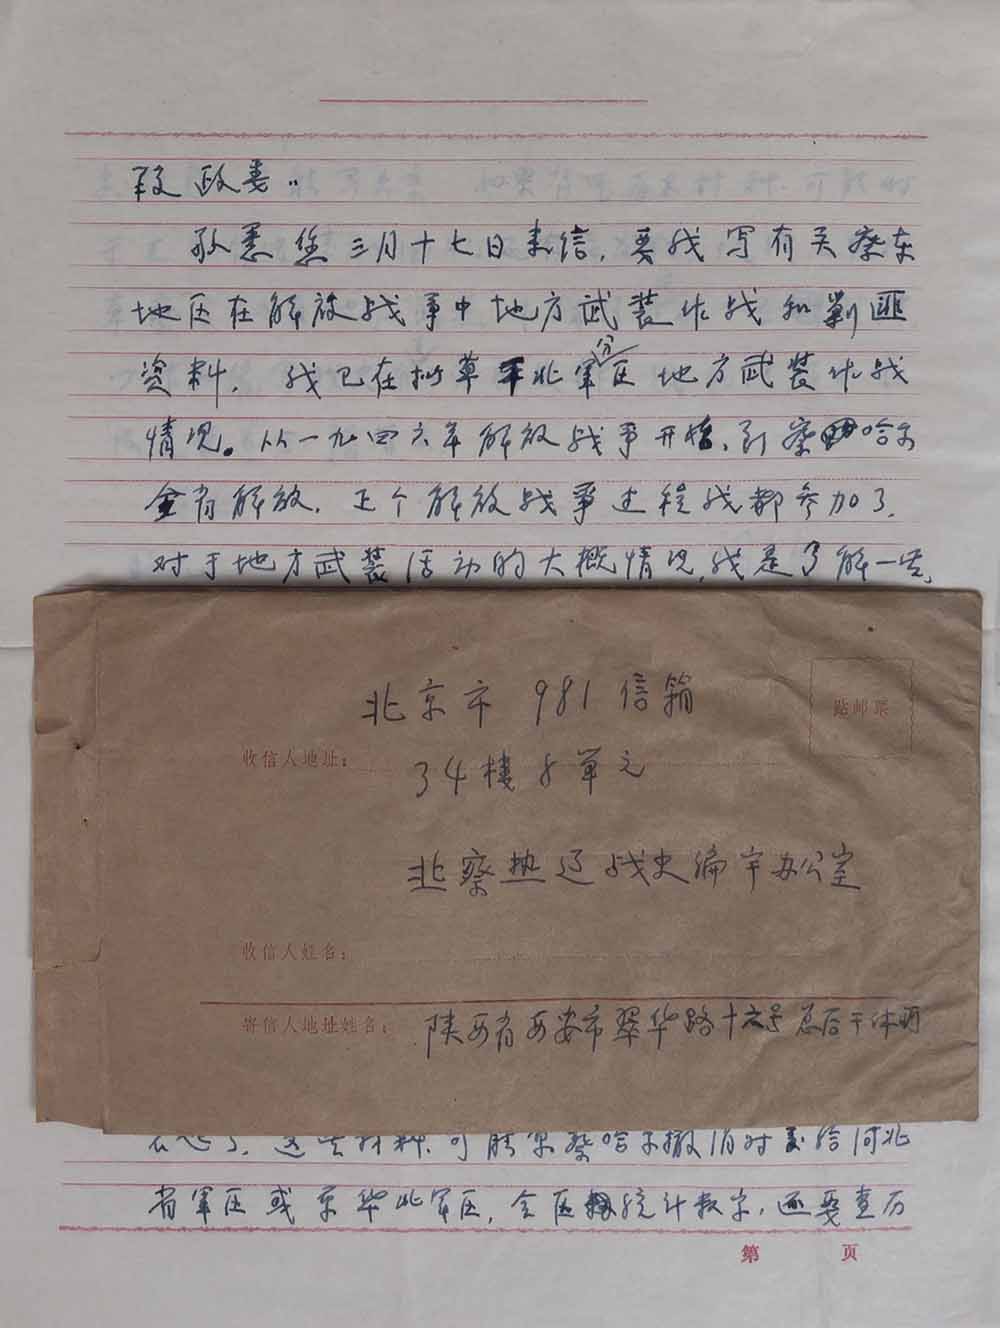 段政委：
敬悉您三月十七日来信，要我写有关察东
地区在解放战争中地方武装作战和剿匪
资料，我已在拟草平北军分区地方武装作战
情况。从一九四六年解放战争开始，到察哈尔
全省解放，正个解放战争过程我都参加了，
对于地方武装活动的大概情况，我是了解一些，
北京市981信箱
贴邮票
收信人地址：
34楼8单元
北察热辽战史编字办公室
收信人姓名：
寄信人地址姓名：陕西省西安市翠华路十六号总后干休所
了，这些材料，可能原察哈尔撤消时交给河北
省军区或京华北军区，全区统计数字，还要查历
第 页